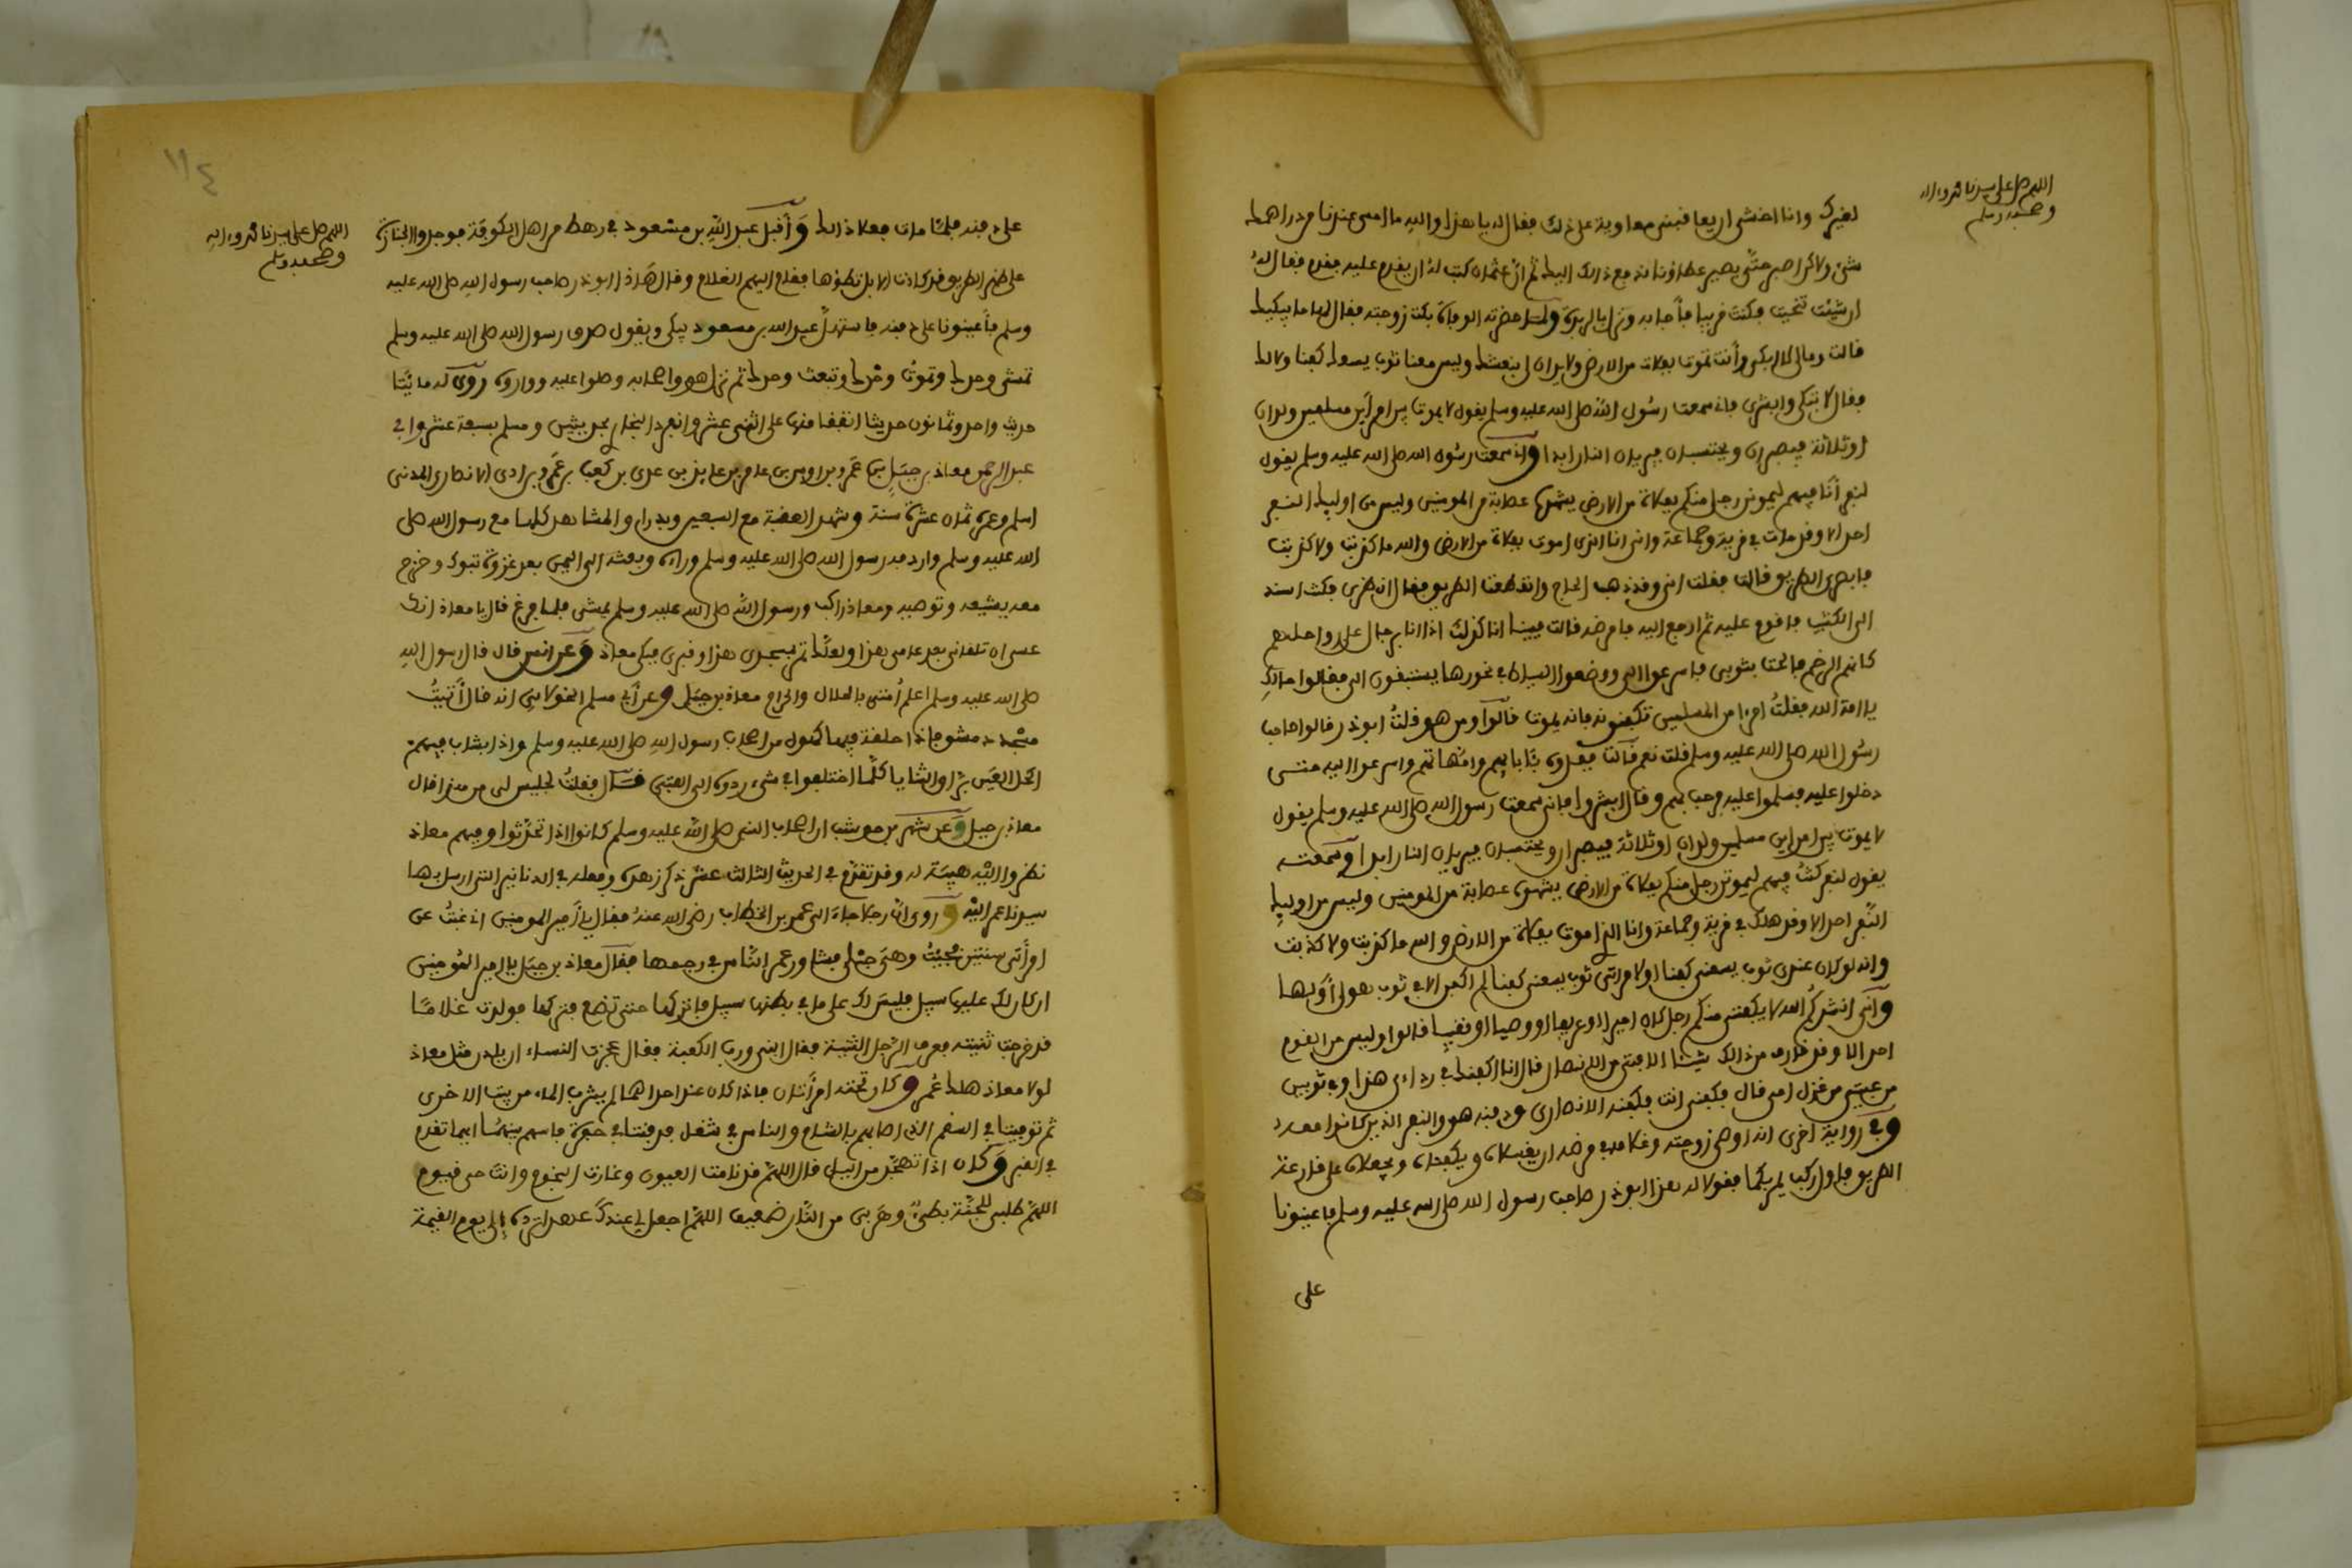 اللهم صل على سيدنا محمد وءاله
وصحبه وسلم
لغيرك وانا اخشى ان يعاقبني معاوية على ذلك فقال له يا هذا والله ما امسى عندنا من دراهمك
شئ ولاكن اصبر حتى يحضر عطاؤنا ندفع ذالك اليك ثم ان عثمان كتب له ان يقدم عليه فقدم فقال له
ان شئت تنحيت فكنت قريبا فأجابه ونزل بالربذة ولما حضرته الوفاة بكت زوجته فقال لها ما يبكيك
قالت ومالي لا ابكي وأنت تموت بفلاة من الارض ولا يدان لي بنعشك وليس معنا ثوب يسعك كفنا ولا لك
فقال لا تبكي وابشري فاني سمعت رسول الله صلى الله عليه وسلم يقول لا يموت بين امرأين مسلمين ولدان
او ثلاثة فيصبران ويحتسبان فيريان النار ابدا واني سمعت رسول الله صلى الله عليه وسلم يقول
لنفر أنا فيهم ليموتن رجل منكم بفلاة من الارض يشهدها عصابة من المومنين وليس من اوليك النفر
احد الا وقد مات في قرية وجماعة واني انا الذي اموت بفلاة من الارض والله ما كذبت ولا كذبت
فابصري الطريق قالت فقلت انى وقد ذهب الحاج وانقطعت الطريق فقال انظري فكنت اسند
الى الكثيب فاقوم عليه ثم ارجع اليه فامرضه قالت فبينا انا كذلك اذا انا برجال على رواحلهم
كانهم الرخم فالحت بثوبي فاسرعوا الي ووضعوا السياط في نحورها يستبقون الي فقالوا مالك
يا امة الله فقلت امرءا من المسلمين تكفنونه فانه يموت قالوا ومن هو قلت ابوذر قالوا صاحب
رسول الله صلى الله عليه وسلم قلت نعم قالت ففدوه بئابايهم وامهاتهم واسرعوا اليه حتى
دخلوا عليه فسلموا عليه فرحب بهم وقال ابشروا فاني سمعت رسول الله صلى الله عليه وسلم يقول
لا يموت بين امراين مسلمين ولدان او ثلاثة فيصبران ويحتسبان فيريان النار ابدا وسمعته
يقول لنفر كنت فيهم ليموتن رجل منكم بفلاة من الارض يشهده عصابة من المومنين وليس من اوليك
النفر احد الا وقد هلك في قرية وجماعة وانا الذي اموت بفلاة من الارض والله ما كذبت ولا كذبت
وانه لو كان عندي ثوب يسعني كفنا او لامرأتي ثوب يسعني كفنا لم اكفن الا في ثوب هو لي أو لها
واني انشدكم الله لا يكفنني منكم رجل كان اميرا او عريفا او وصيا او نقيبا قالوا وليس من القوم
احد الا وقد قارف من ذالك شيئا الا فتى من الانصار قال انا اكفنك في رداءي هذا وفي ثوبين
من عيبتي من غزل امي قال فكفني انت فكفنه الانصاري ودفنه هو والنفر الذين كانوا معه
وفي رواية اخرى انه اوصى زوجته وغلامه في مرضه ان يغسلاه ويكفناه ويجعلاه على قارعة
الطريق فاول ركب يمر بكما فقولا له هذا ابوذر صاحب رسول الله صلى الله عليه وسلم فاعينونا
على
١١٤
اللهم صل على سيدنا محمد وءاله
وصحبه وسلم
على دفنه فلما مات فعلا ذالك وأقبل عبد الله بن مسعود في رهط من اهل الكوفة فوجدوا الجنازة
على ظهر الطريق قد كادت الابل تطؤها فقام اليهم الغلام وقال هذا ابوذر صاحب رسول الله صلى الله عليه
وسلم فأعينونا على دفنه فاستهل عبد الله بن مسعود يبكي ويقول صدق رسول الله صلى الله عليه وسلم
تمشي وحدك وتموت وحدك وتبعث وحدك ثم نزل هو واصحابه وصلوا عليه وواروه روي له مايتا
حديث واحد وثمانون حديثا اتفقا منها على اثني عشر وانفرد البخاري بحديثين ومسلم بسبعة عشر وابي
عبد الرحمن معاذ بن جبل بن عمرو بن اوس بن عايذ بن عدي بن كعب بن عمرو بن ادي الانصاري المدني
اسلم وعمره ثمان عشرة سنة وشهد العقبة مع السبعين وبدرا والمشاهد كلها مع رسول الله صلى
الله عليه وسلم واردفه رسول الله صلى الله عليه وسلم وراءه وبعثه الى اليمن بعد غزوة تبوك وخرج
معه يشيعه وتوصيه ومعاذ راكب ورسول الله صلى الله عليه وسلم يمشي فلما فرغ قال يا معاذ انك
عسى ان تلقاني بعد عامي هذا ولعلك تمر بمسجدي هذا وقبري فبكى معاذ وعن انس قال قال رسول الله
صلى الله عليه وسلم اعلم أمتي بالحلال والحرام معاذ بن جبل وعن أبي مسلم الخولاني انه قال أتيت
مسجد دمشق فاذا حلقة فيها كهول من اصحاب رسول الله صلى الله عليه وسلم واذا بشاب فيهم
اكحل العين براق الثنايا كلما اختلفوا في شيء ردوه الى الفتى قال فقلت لجليس لي من هذا قال
معاذ بن جبل وعن شهر بن حوشب ان اصحاب النبي صلى الله عليه وسلم كانوا اذا تحدثوا وفيهم معاذ
نظروا اليه هيبة له وقد تقدم في الحديث الثالث عشر ذكر زهده وفعله في الدنانير التي ارسل بها
سيدنا عمر اليه وروي ان رجلا جاء الى عمر بن الخطاب رضي الله عنه فقال يا أمير المومنين اني غبت عن
امرأتي سنتين فجئت وهي حبلى فشاور عمر الناس في رجمها فقال معاذ بن جبل يا امير المومنين
ان كان لك عليها سبيل فليس لك على ما في بطنها سبيل فاتركها حتى تضع فتركها فولدت غلاما
قد خرجت ثنيته فعرف الرجل الشبه فقال ابني ورب الكعبة فقال عجزت النساء ان يلدن مثل معاذ
لولا معاذ هلك عمر وكان تحته امرأتان فاذا كان عند احداهما لم يشرب الماء من بيت الاخرى
ثم توفيتا في السقم الذي اصابهم بالشام والناس في شغل فدفنتا في حفرة فاسهم بينهما ايهما تقدم
في القبر وكان اذا تهجد من الليل قال اللهم قد نامت العيون وغارت النجوم وانت حي قيوم
اللهم طلبي للجنة بطيء وهربي من النار ضعيف اللهم اجعل لي عندك عهدا ترده إلى يوم القيمة